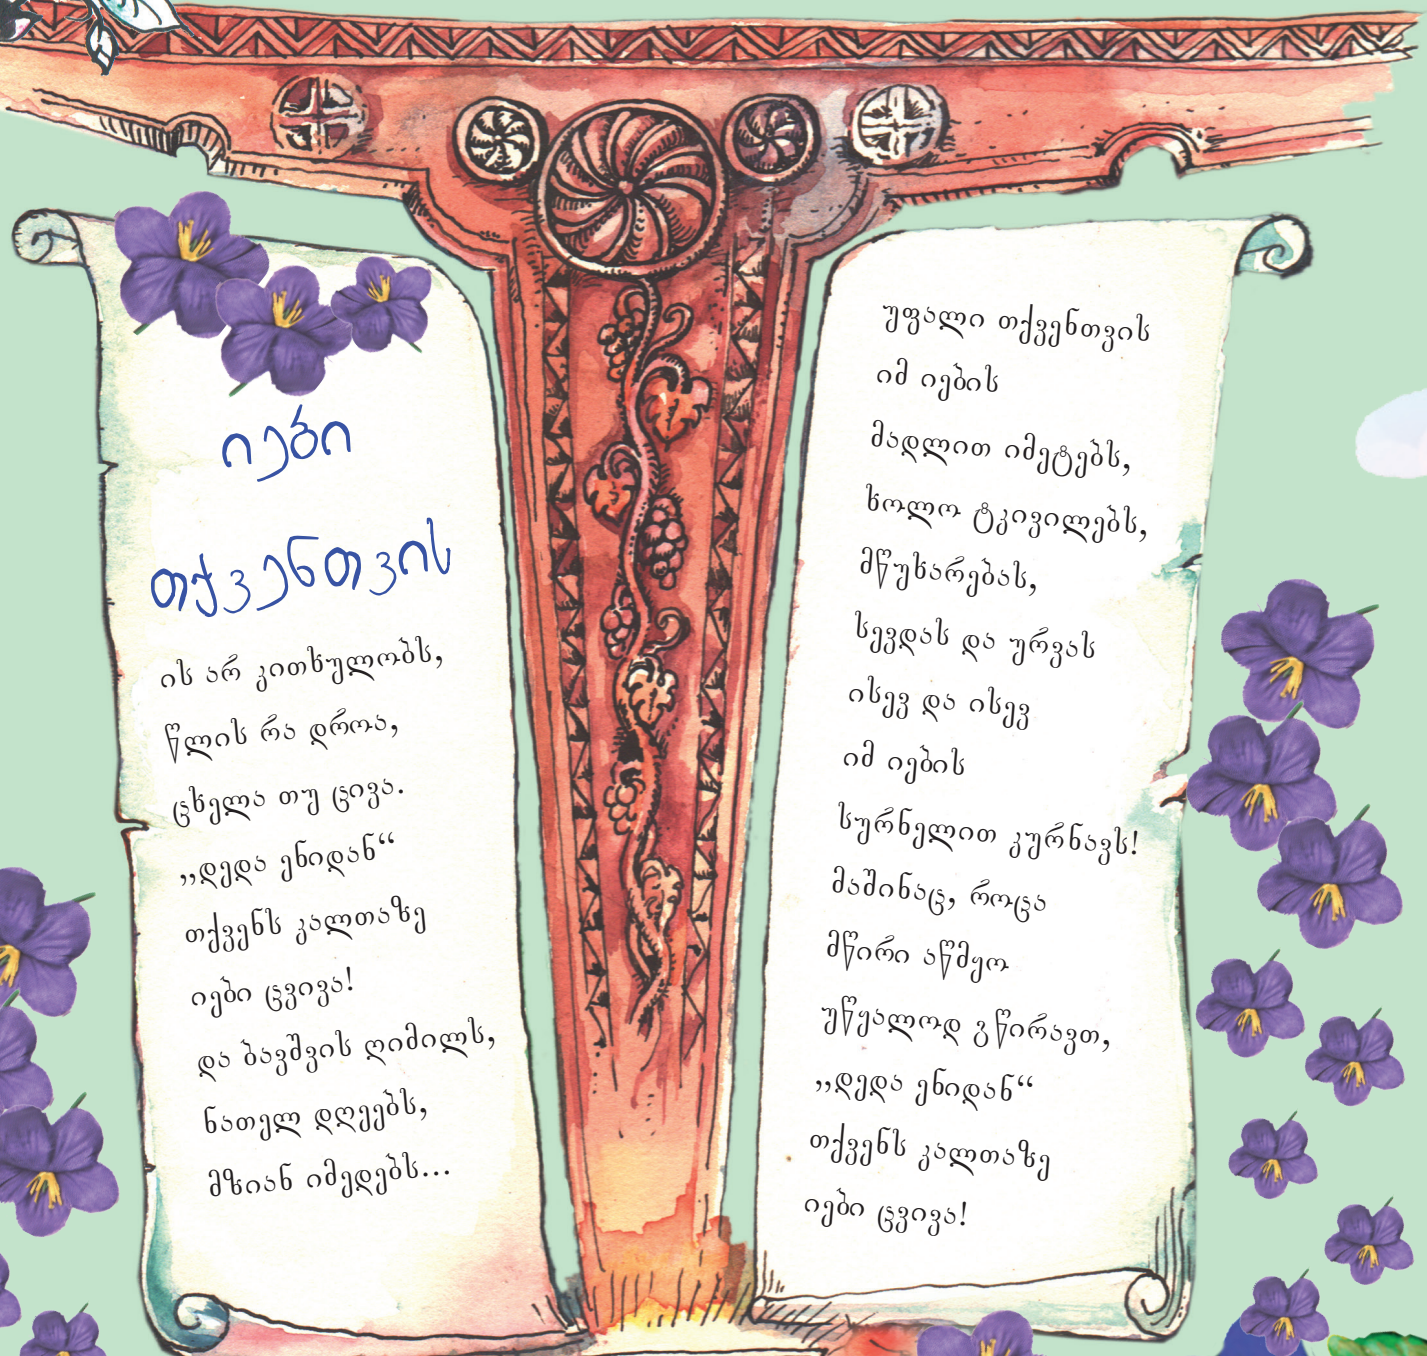 იები
თქვენთვის
ის არ კითხულობს,
წლის რა დროა,
ცხელა თუ ცივა.
„დედა ენიდან“
თქვენს კალთაზე
იები ცვივა!
და ბავშვის ღიმილს,
ნათელ დღეებს,
მზიან იმედებს...
უფალი თქვენთვის
იმ იების
მადლით იმეტებს,
ხოლო ტკივილებს,
მწუხარებას,
სევდას და ურვას
ისევ და ისევ
იმ იების
სურნელით კურნავს!
მაშინაც, როცა
მწირი აწმყო
უწყალოდ გწირავთ,
„დედა ენიდან“
თქვენს კალთაზე
იები ცვივა!